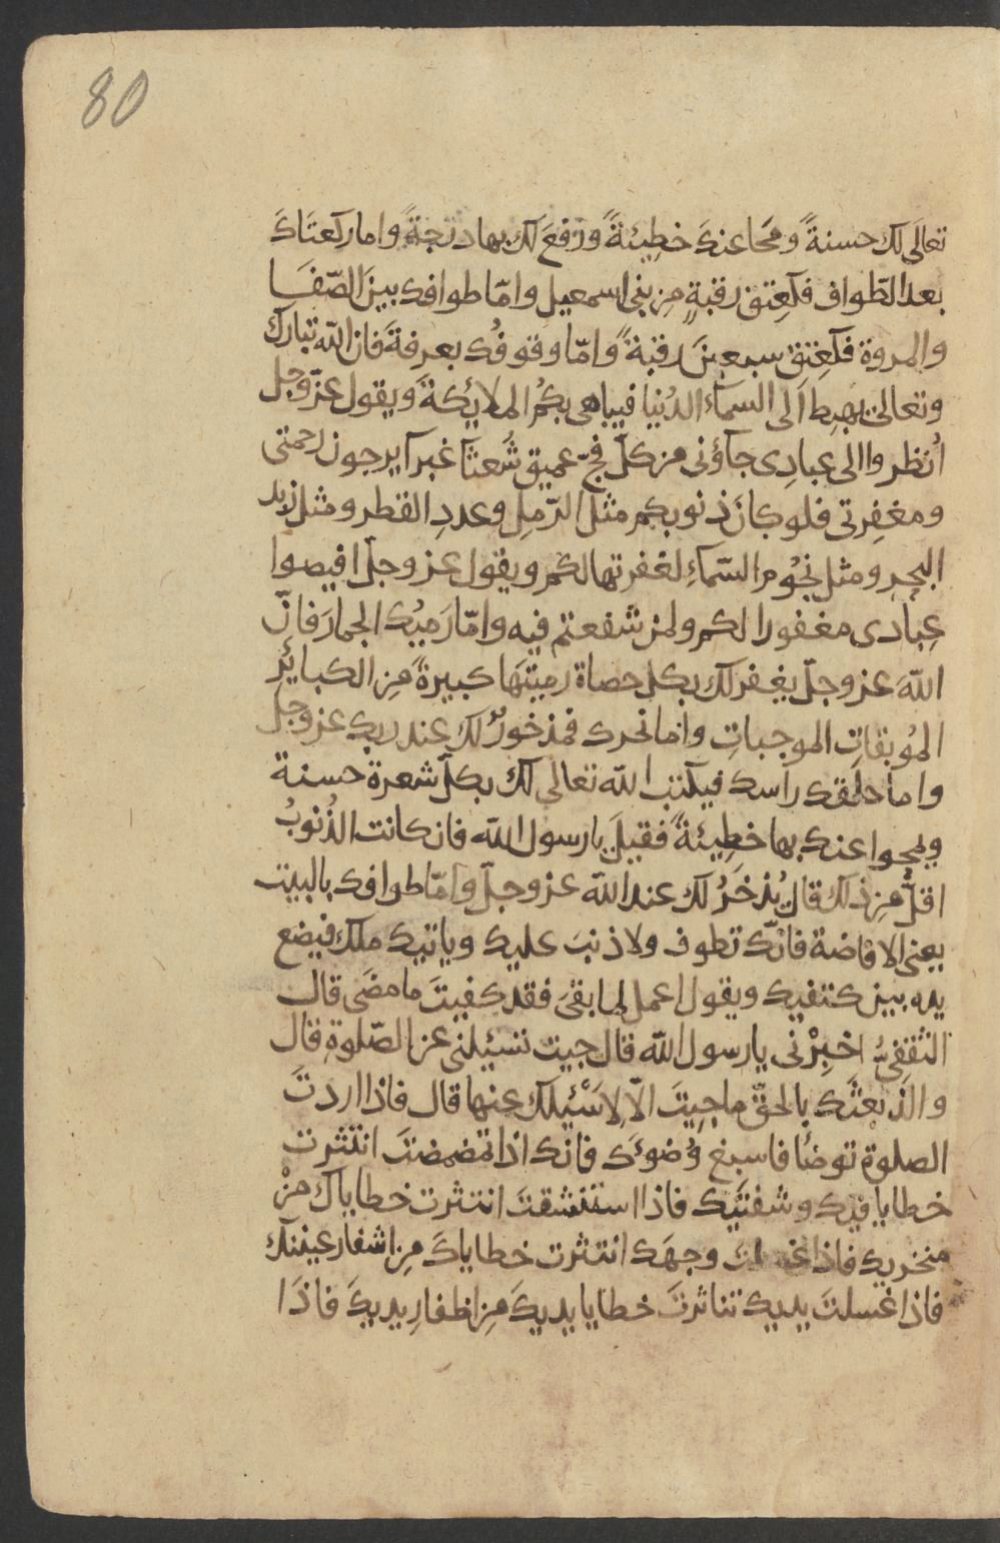 80
تعالى لك حسنةً ومَحا عنكَ خطِيئةً ورفعَ لك بها درجةً واما ركعتَاكَ
بعد الطّواف فكعِتق رقبةٍ مِن بنى اسمعيل وامّا طوافك بينَ الصّفَا
والمروة فكعِتق سبعِينَ رقبةً وامّا وقوفُك بعرفةَ فان اللّه تبارك
وتعالى يهبِط اَلى السمآء الدُنيا فيباهى بكُم الملايكةَ ويقول عزّ وجل
اُنظروا الى عبادِى جآؤنى من كلّ فجّ عميق شُعثًا غبراً يرجون رحمتى
ومغفِرتى فلو كانَ ذنوبكم مثل الرّمل وعددِ القطر ومثل زبد
البحرِ ومثل نجُوم السّماءِ لغفرتها لكم ويقول عز وجلّ افيضوا
عِبادى مغفورا لكم ولمن شفعتم فيه وامّا رَميُك الجمارَ فانّ
اللّهَ عز وجلّ يغفر لك بكل حصاة رميتَها كبيرةً مِن الكبائِر
المُوبقاتِ الموجباتِ واما نحرك فمذخورٌ لك عند ربك عز وجل
واما حلقك راسك فيكتب اللّه تعالى لك بكلّ شعرة حسنة
ويمحوا عنك بها خطِيئةً فقيلَ يا رسول اللّه فان كانت الذُنوبُ
اقلَّ مِن ذلك قال يُذخَرُ لك عند اللّه عز وجلّ وامّا طوافك بالبيت
يعنى الافاضة فانّك تطوف ولا ذنبَ عليك وياتيك ملك فيضع
يده بين كتفيك ويقول اعمل لما بقىَ فقد كفيتَ ما مضَى قال
الثقفِىُّ اخبِرْنى يا رسول اللّه قال جيت تسئلنى عن الصّلوةِ قال
والذى بعثَك بالحقّ ما جِيتَ الّا لِاَسْئيلك عنها قال فاذا اردتَ
الصلوة توضأ فاسبغ وُضوئَك فانك اذا تمضمضتَ انتثرت
خطايا فيك وشفتَيك فاذا استنشقتَ انتثرت خطاياك مِنْ
منخريك فاذا غسلتَ وجهَك انتثرت خطاياكَ مِن اشفار عينيك
فاذا غسلتَ يديك تناثرتَ خطايا يديكَ مِن اظفارِ يديكَ فاذَا